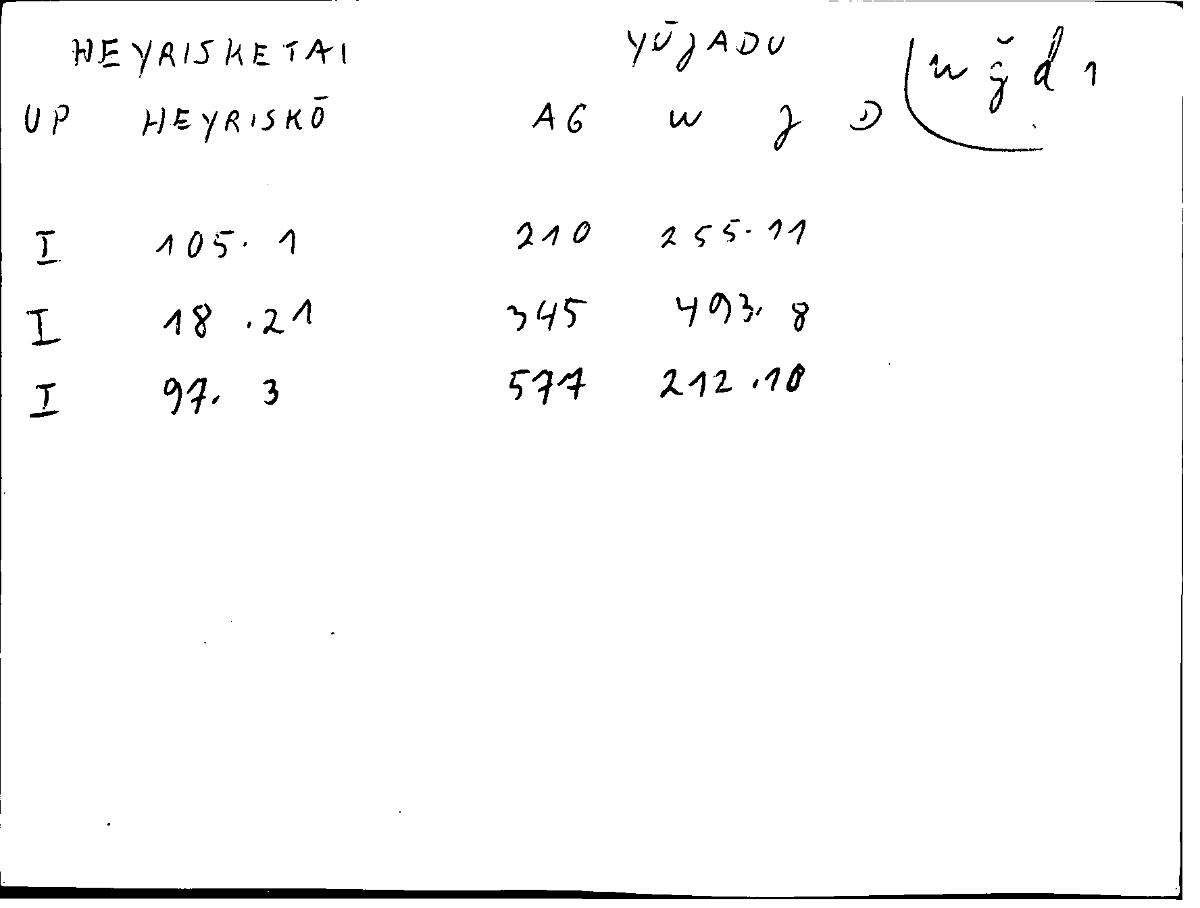 HEYRISKETAI YŪJADU w ǧ d 1
UP HEYRISKŌ AG w J D
I 105. 1 210 255. 11
I 18 .21 345 493. 8
I 97. 3 577 212 .10